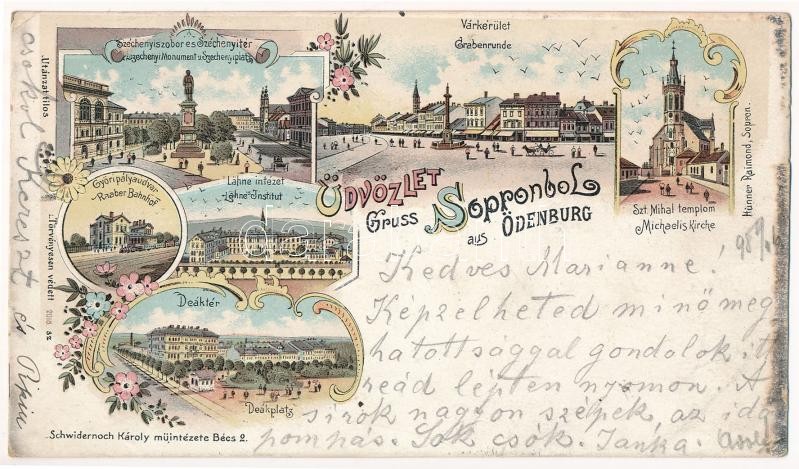 Széchenyiszobor és Széchenyitér
Széchenyi Monument u. Széchenyiplatz
Várkerület
Grabenrunde
Győri pályaudvar
Raaber Bahnhof
Lähne intézet
Lähne-Institut
ÜDVÖZLET SopronboL
Gruss aus ÖDENBURG
Szt. Mihal templom
Michaelis Kirche
Hünner Raimond, Sopron.
Utánzat tilos
Törvényesen védett
sz
Deáktér
Deákplatz
Schwidernoch Károly müintézete Bécs 2.
Kedves Marianne!
Képzelheted minő meg
hatottsággal gondolok itt
reád lépten nyomon. A
sírok nagyon szépek az idő
pompás. Sok csók. Janka.
csokol Kereszt és